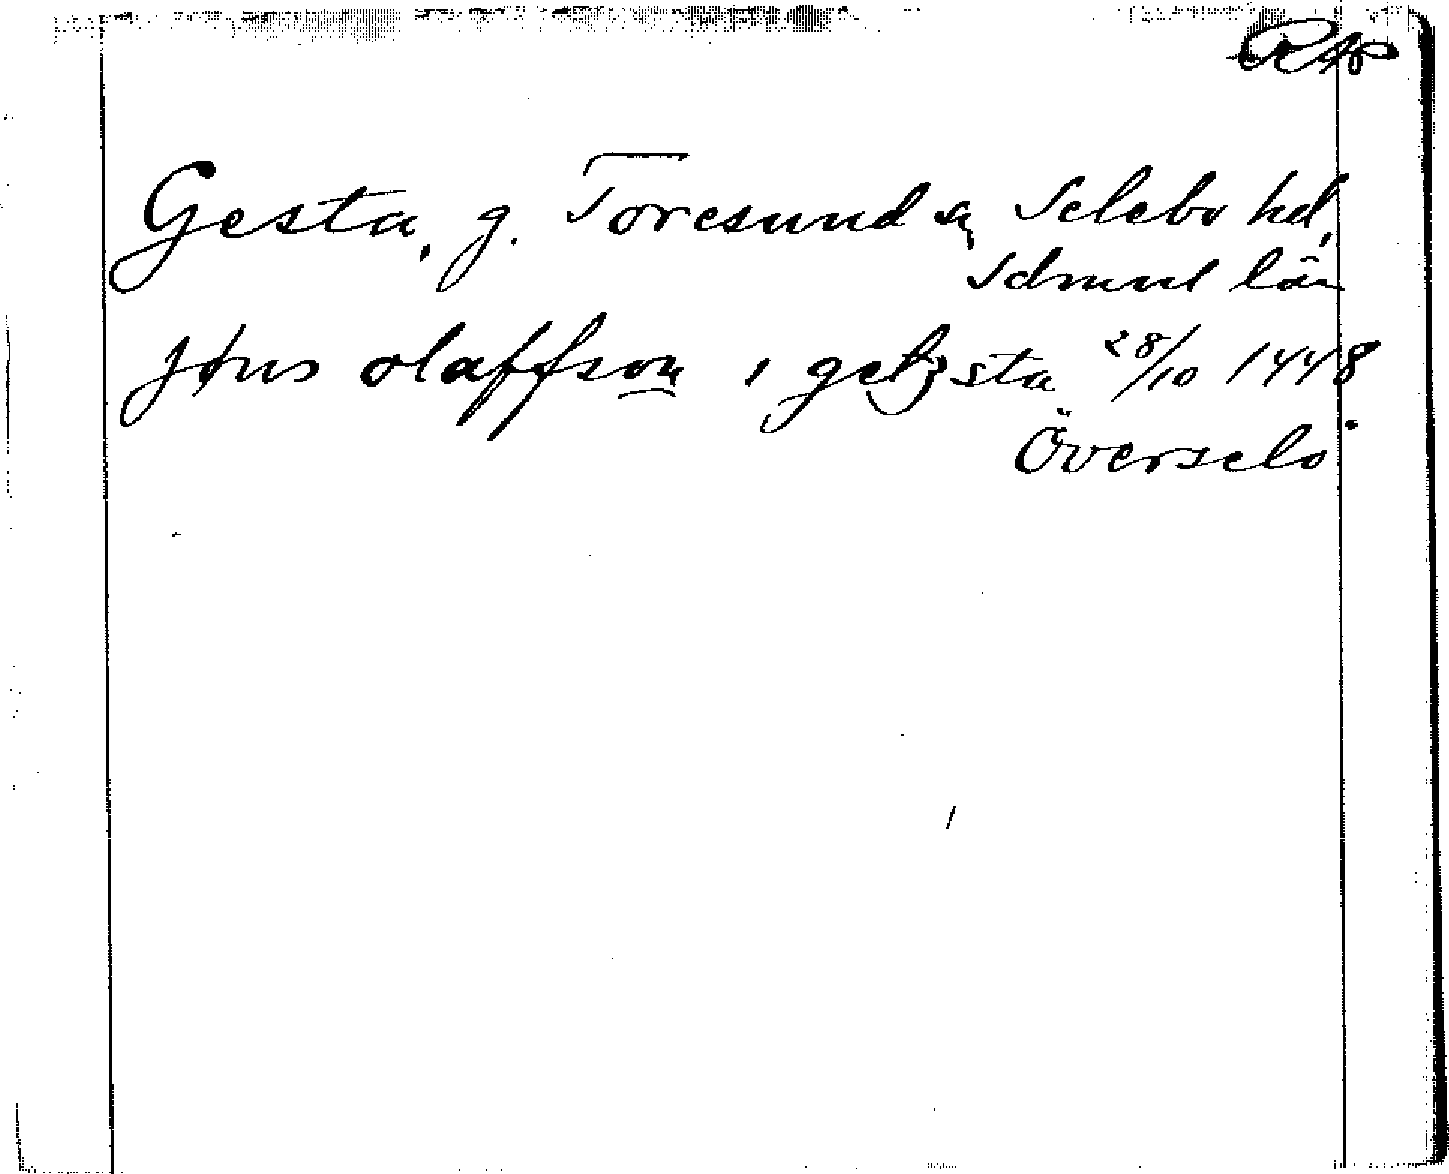 RAp
Gesta, g. Toresund sn, Selebo hd,
Södmanl län
Jøns olaffson i gelzsta 28/10 1448
Överselö